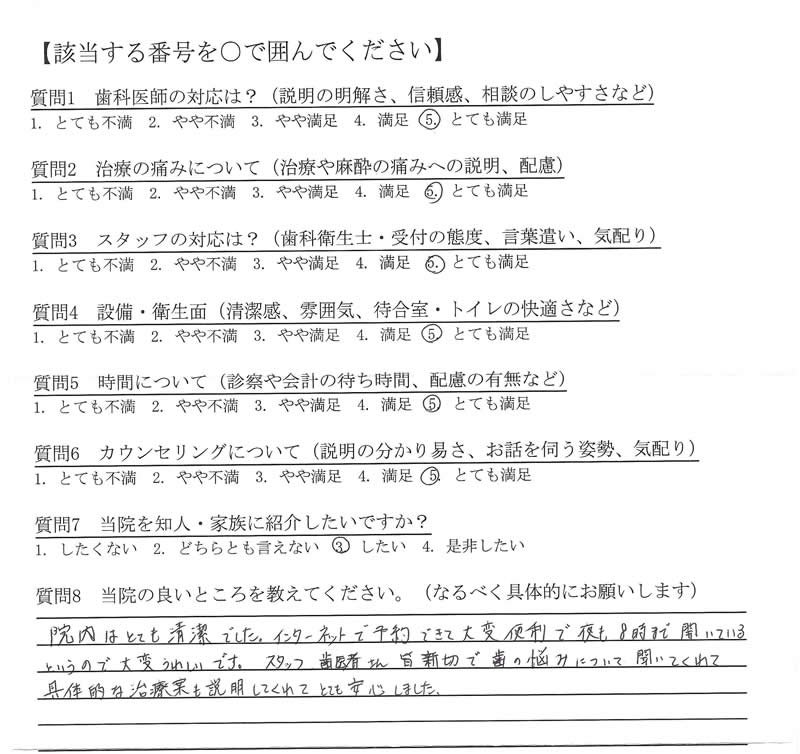 【該当する番号を○で囲んでください】
質問1 歯科医師の対応は？（説明の明解さ、信頼感、相談のしやすさなど）
1. とても不満 2. やや不満 3. やや満足 4. 満足 5. とても満足
質問2 治療の痛みについて（治療や麻酔の痛みへの説明、配慮）
1. とても不満 2. やや不満 3. やや満足 4. 満足 5. とても満足
質問3 スタッフの対応は？（歯科衛生士・受付の態度、言葉遣い、気配り）
1. とても不満 2. やや不満 3. やや満足 4. 満足 5. とても満足
質問4 設備・衛生面（清潔感、雰囲気、待合室・トイレの快適さなど）
1. とても不満 2. やや不満 3. やや満足 4. 満足 5 とても満足
質問5 時間について（診察や会計の待ち時間、配慮の有無など）
1. とても不満 2. やや不満 3. やや満足 4. 満足 5 とても満足
質問6 カウンセリングについて（説明の分かり易さ、お話を伺う姿勢、気配り）
1. とても不満 2. やや不満 3. やや満足 4. 満足 5. とても満足
質問7 当院を知人・家族に紹介したいですか？
1. したくない 2. どちらとも言えない 3 したい 4. 是非したい
質問8 当院の良いところを教えてください。（なるべく具体的にお願いします）
院内はとても清潔でした。インターネットで予約できて大変便利で夜も8時まで開いている
というので大変うれしいです。スタッフ 歯医者さん 皆親切で歯の悩みについて聞いてくれて
具体的な治療案も説明してくれてとても安心しました。